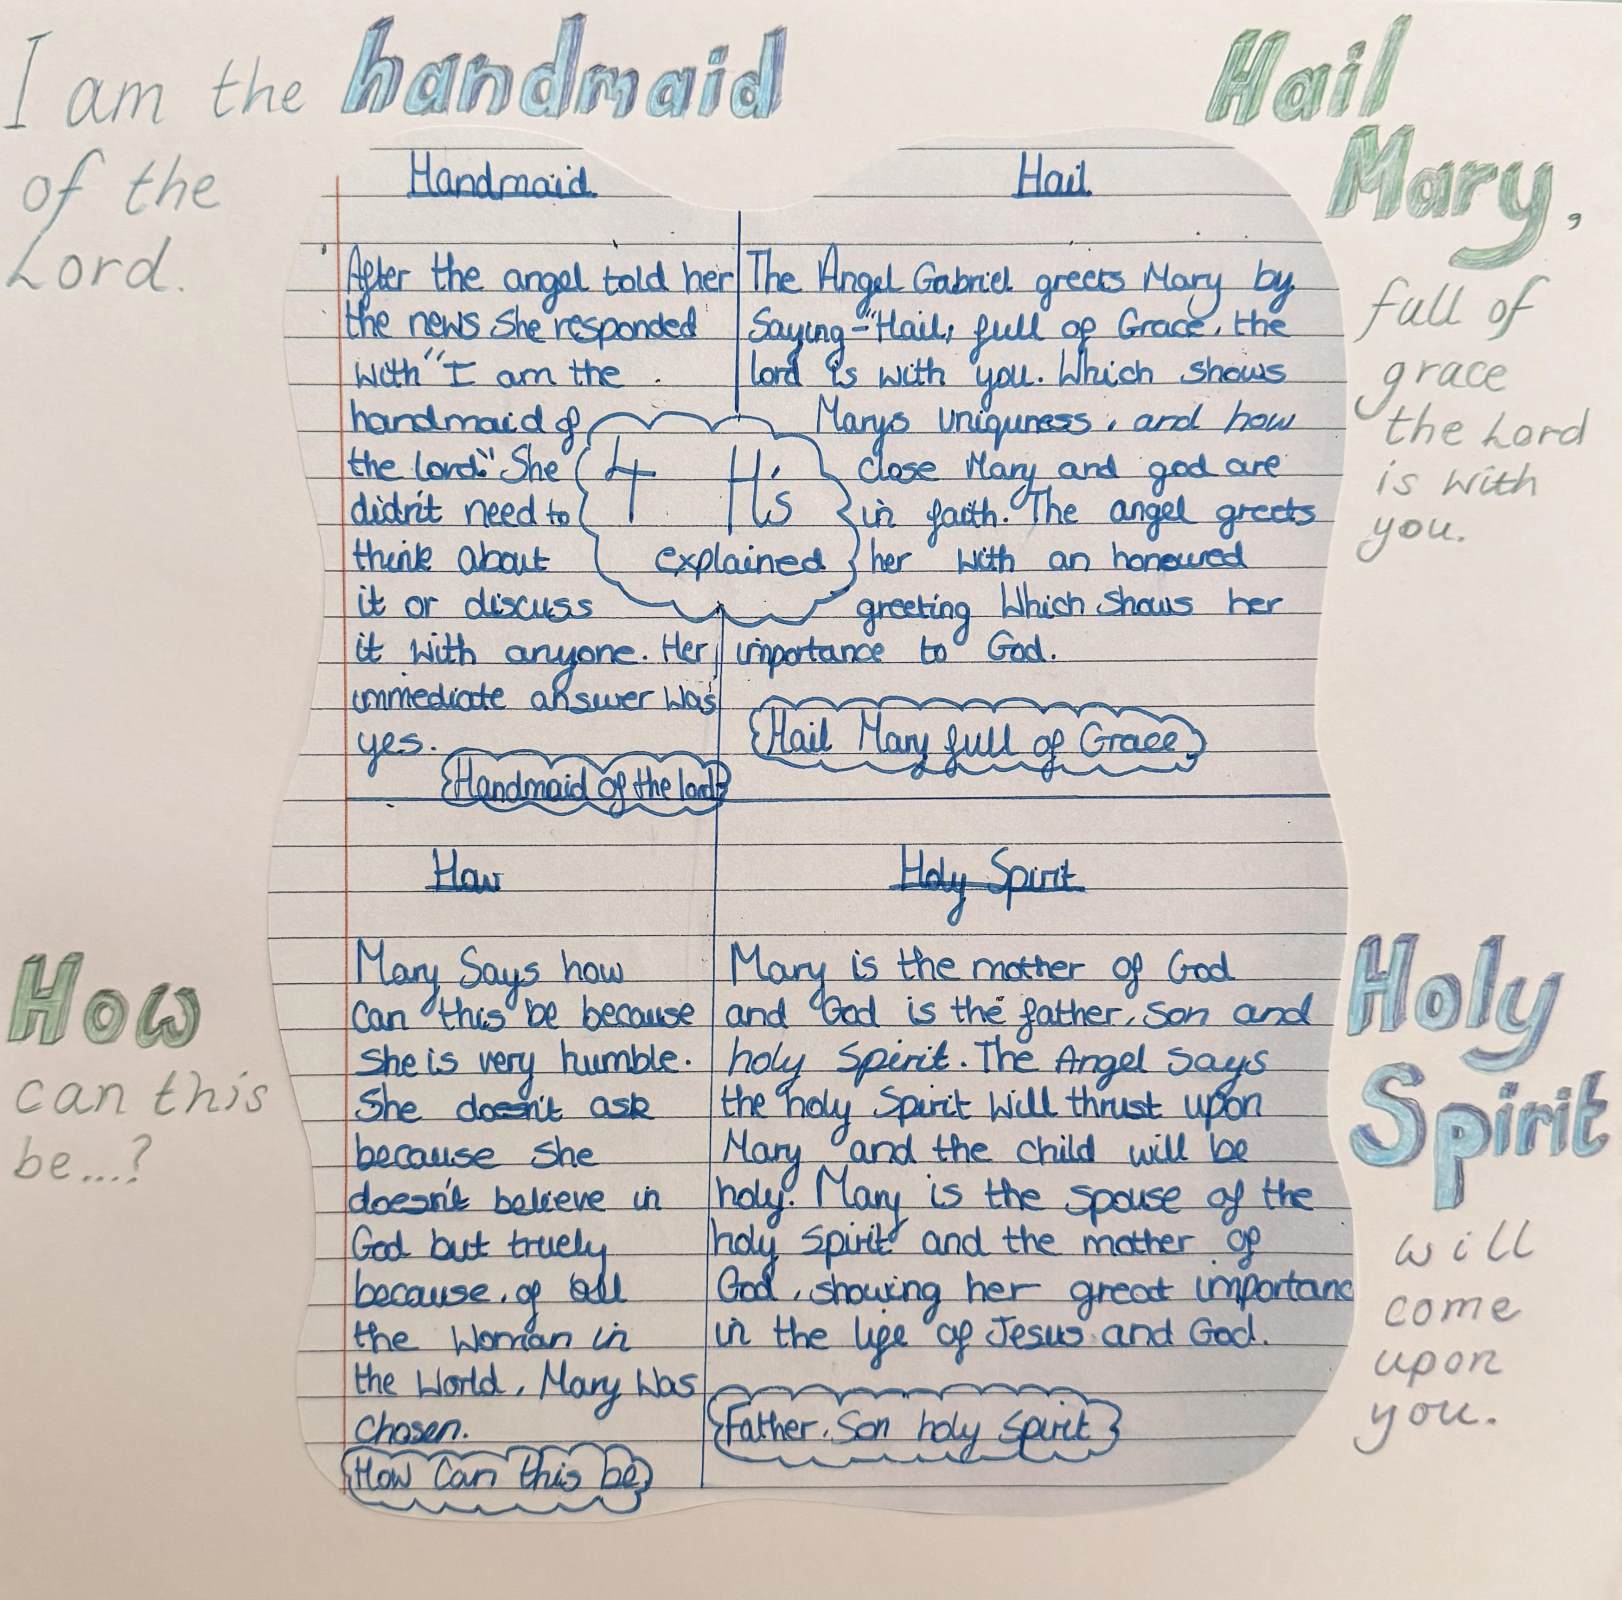 I am the handmaid
of the
Lord.
Hail
Mary,
full of
grace
the Lord
is with
you.
Handmaid
After the angel told her
the news she responded
with "I am the
handmaid of
the lord." She
didn't need to
think about
it or discuss
it with anyone. Her
immediate answer was
yes.
Handmaid of the lord
Hail
The Angel Gabriel greets Mary by
Saying - "Hail, full of Grace, the
lord is with you. Which shows
Marys uniquness, and how
close Mary and god are
in faith. The angel greets
her with an honoured
greeting Which shows her
importance to God.
Hail Mary full of Grace
4 H's
explained
How
Mary Says how
can this be because
she is very humble.
She doesn't ask
because she
doesn't believe in
God but truely
because, of all
the woman in
the World, Mary Was
chosen.
How can this be
Holy Spirit
Mary is the mother of God
and God is the father, son and
holy spirit. The Angel says
the holy spirit will thrust upon
Mary and the child will be
holy. Mary is the spouse of the
holy spirit and the mother of
God, showing her great importanc
in the life of Jesus and God.
Father, Son holy spirit
How
can this
be...?
Holy
Spirit
will
come
upon
you.